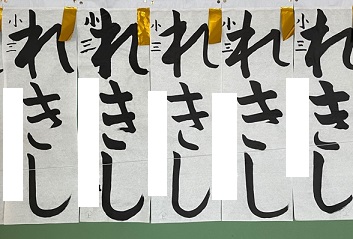 小三
れきし
小三
れきし
小三
れきし
小三
れきし
小三
れきし